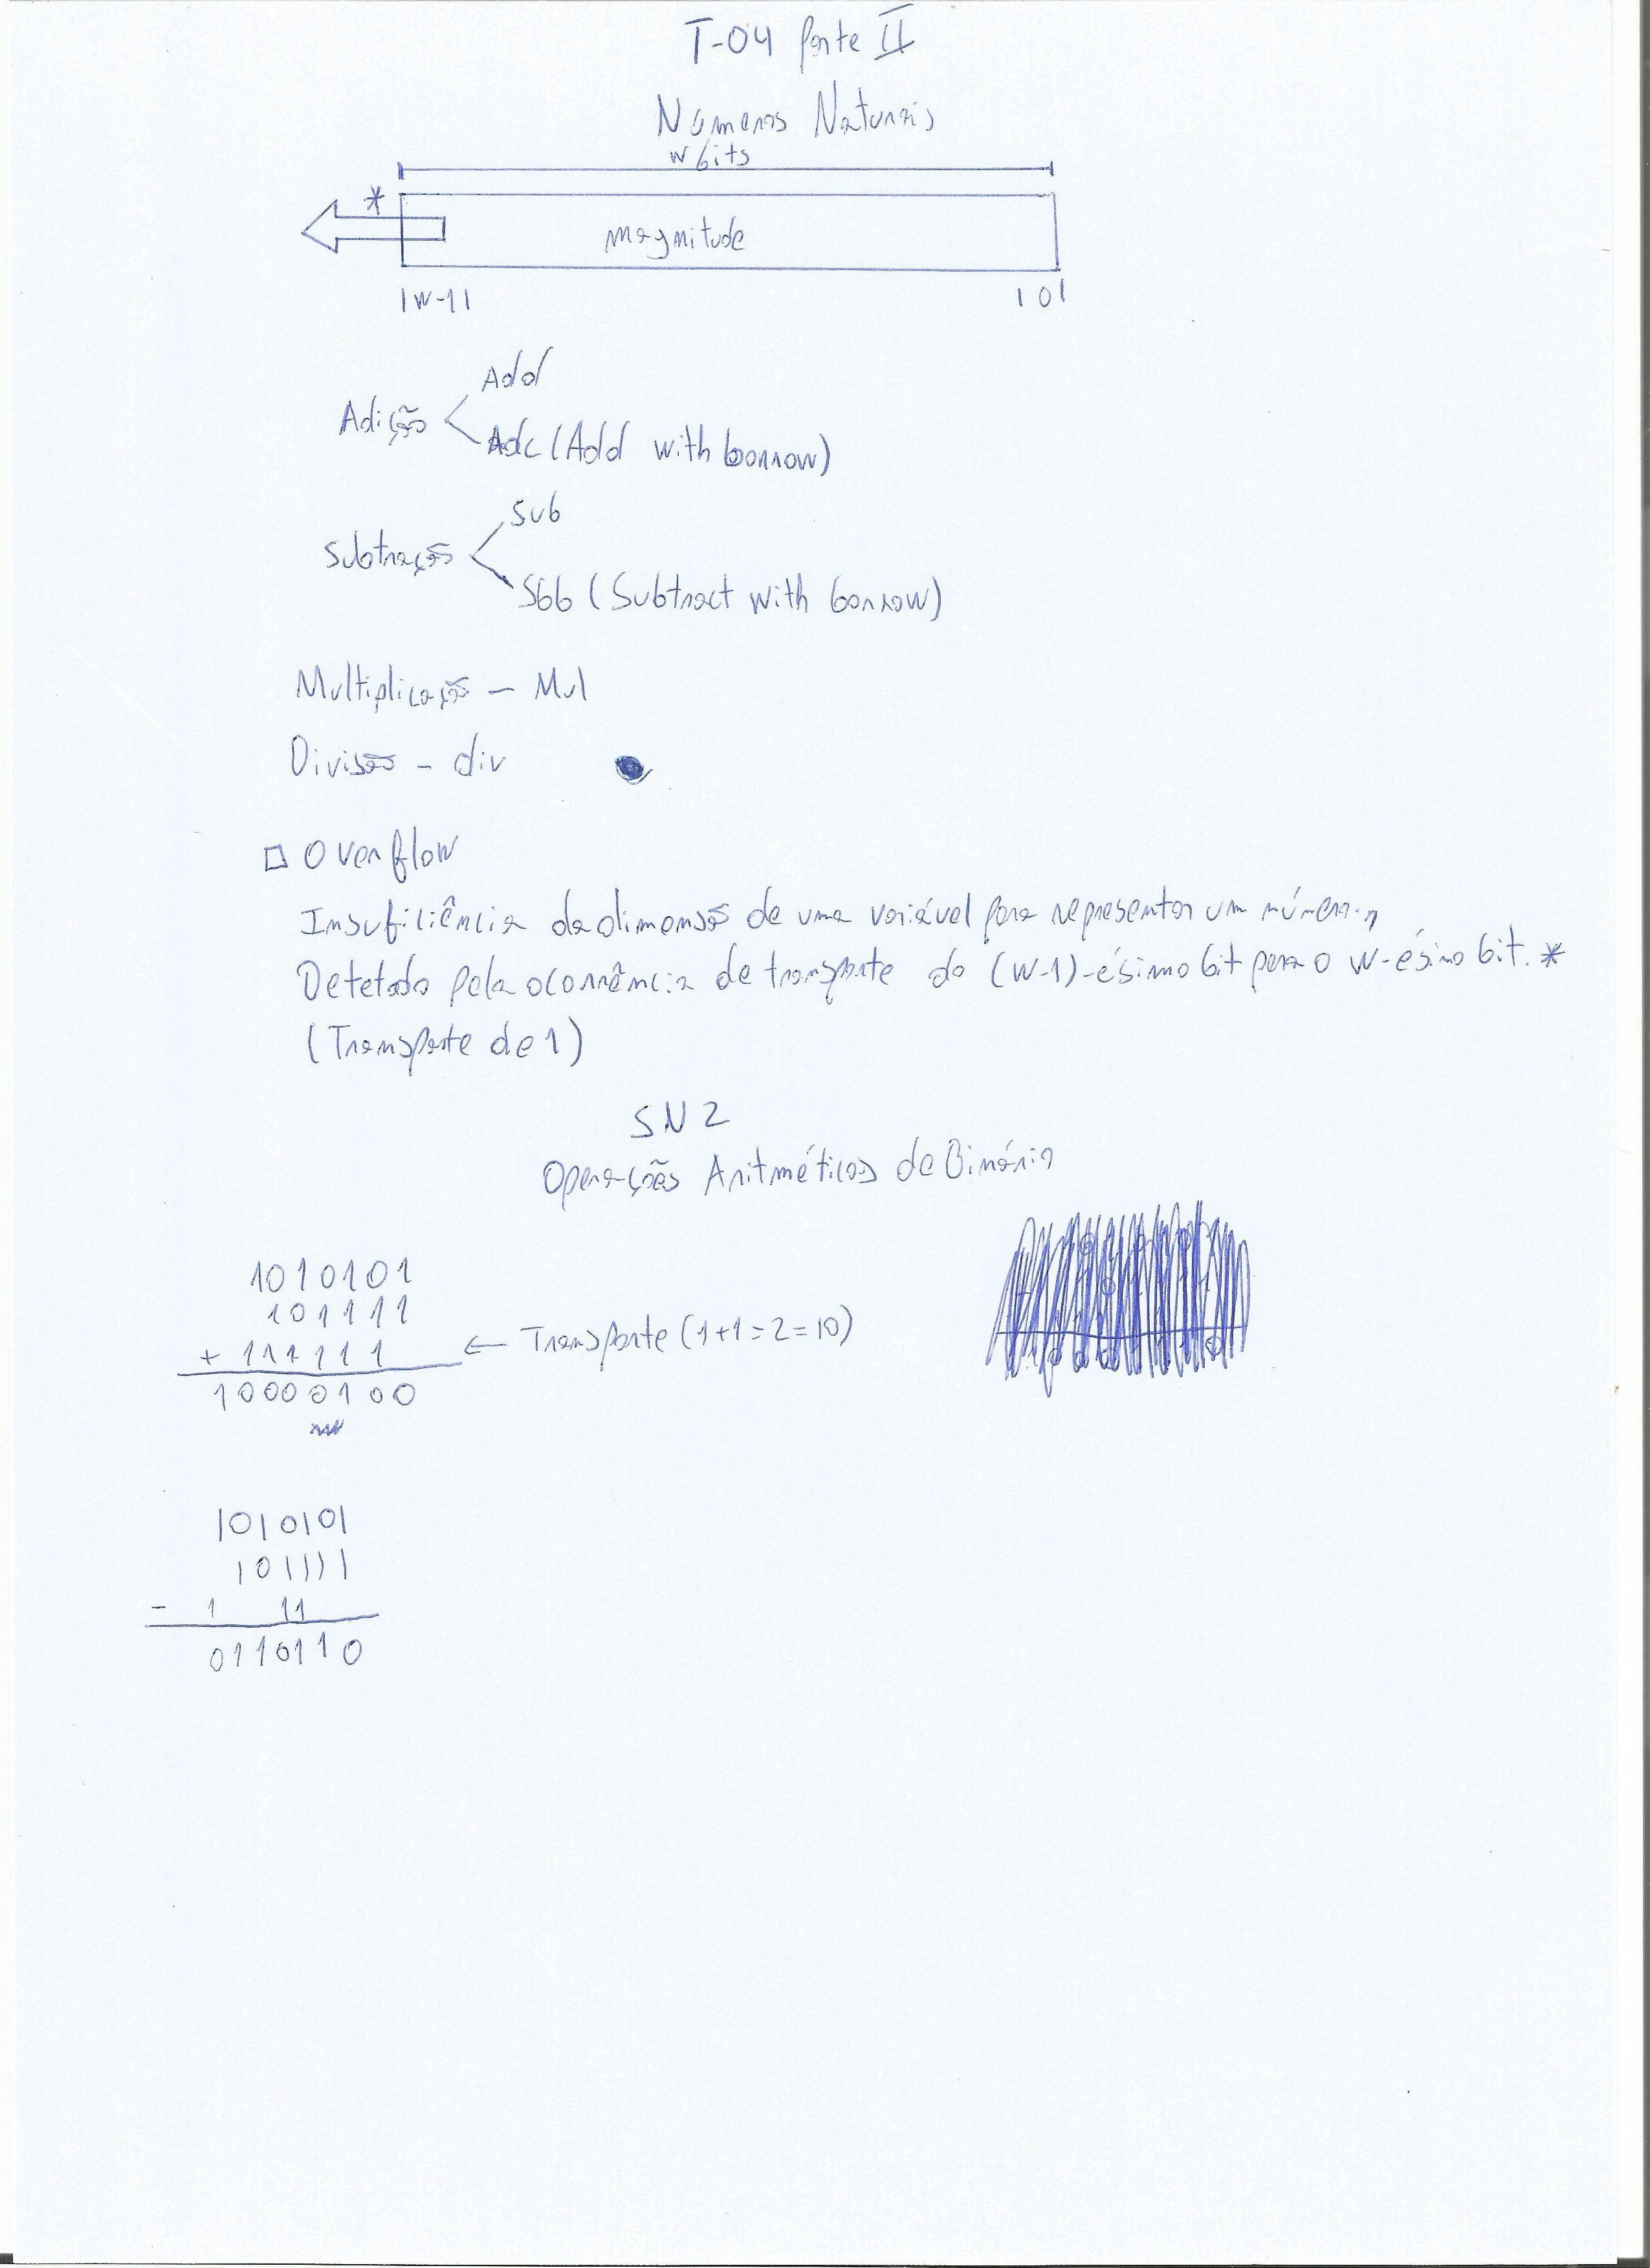 T-04 Parte II
Números Naturais
w bits
*
magnitude
|w-1|
|0|
Add
Adição
Adc (Add with borrow)
Sub
Subtração
Sbb (Subtract with borrow)
Multiplicação - Mul
Divisão - div
Overflow
Insuficiência da dimensão de uma variável para representar um número.
Detetado pela ocorrência de transporte do (w-1)-ésimo bit para o w-ésimo bit. *
(Transporte de 1)
SN2
Operações Aritméticas de Binário
1010101
101111
+ 111111 ← Transporte (1+1=2=10)
10000100
1010101
101111
- 1 11
0110110